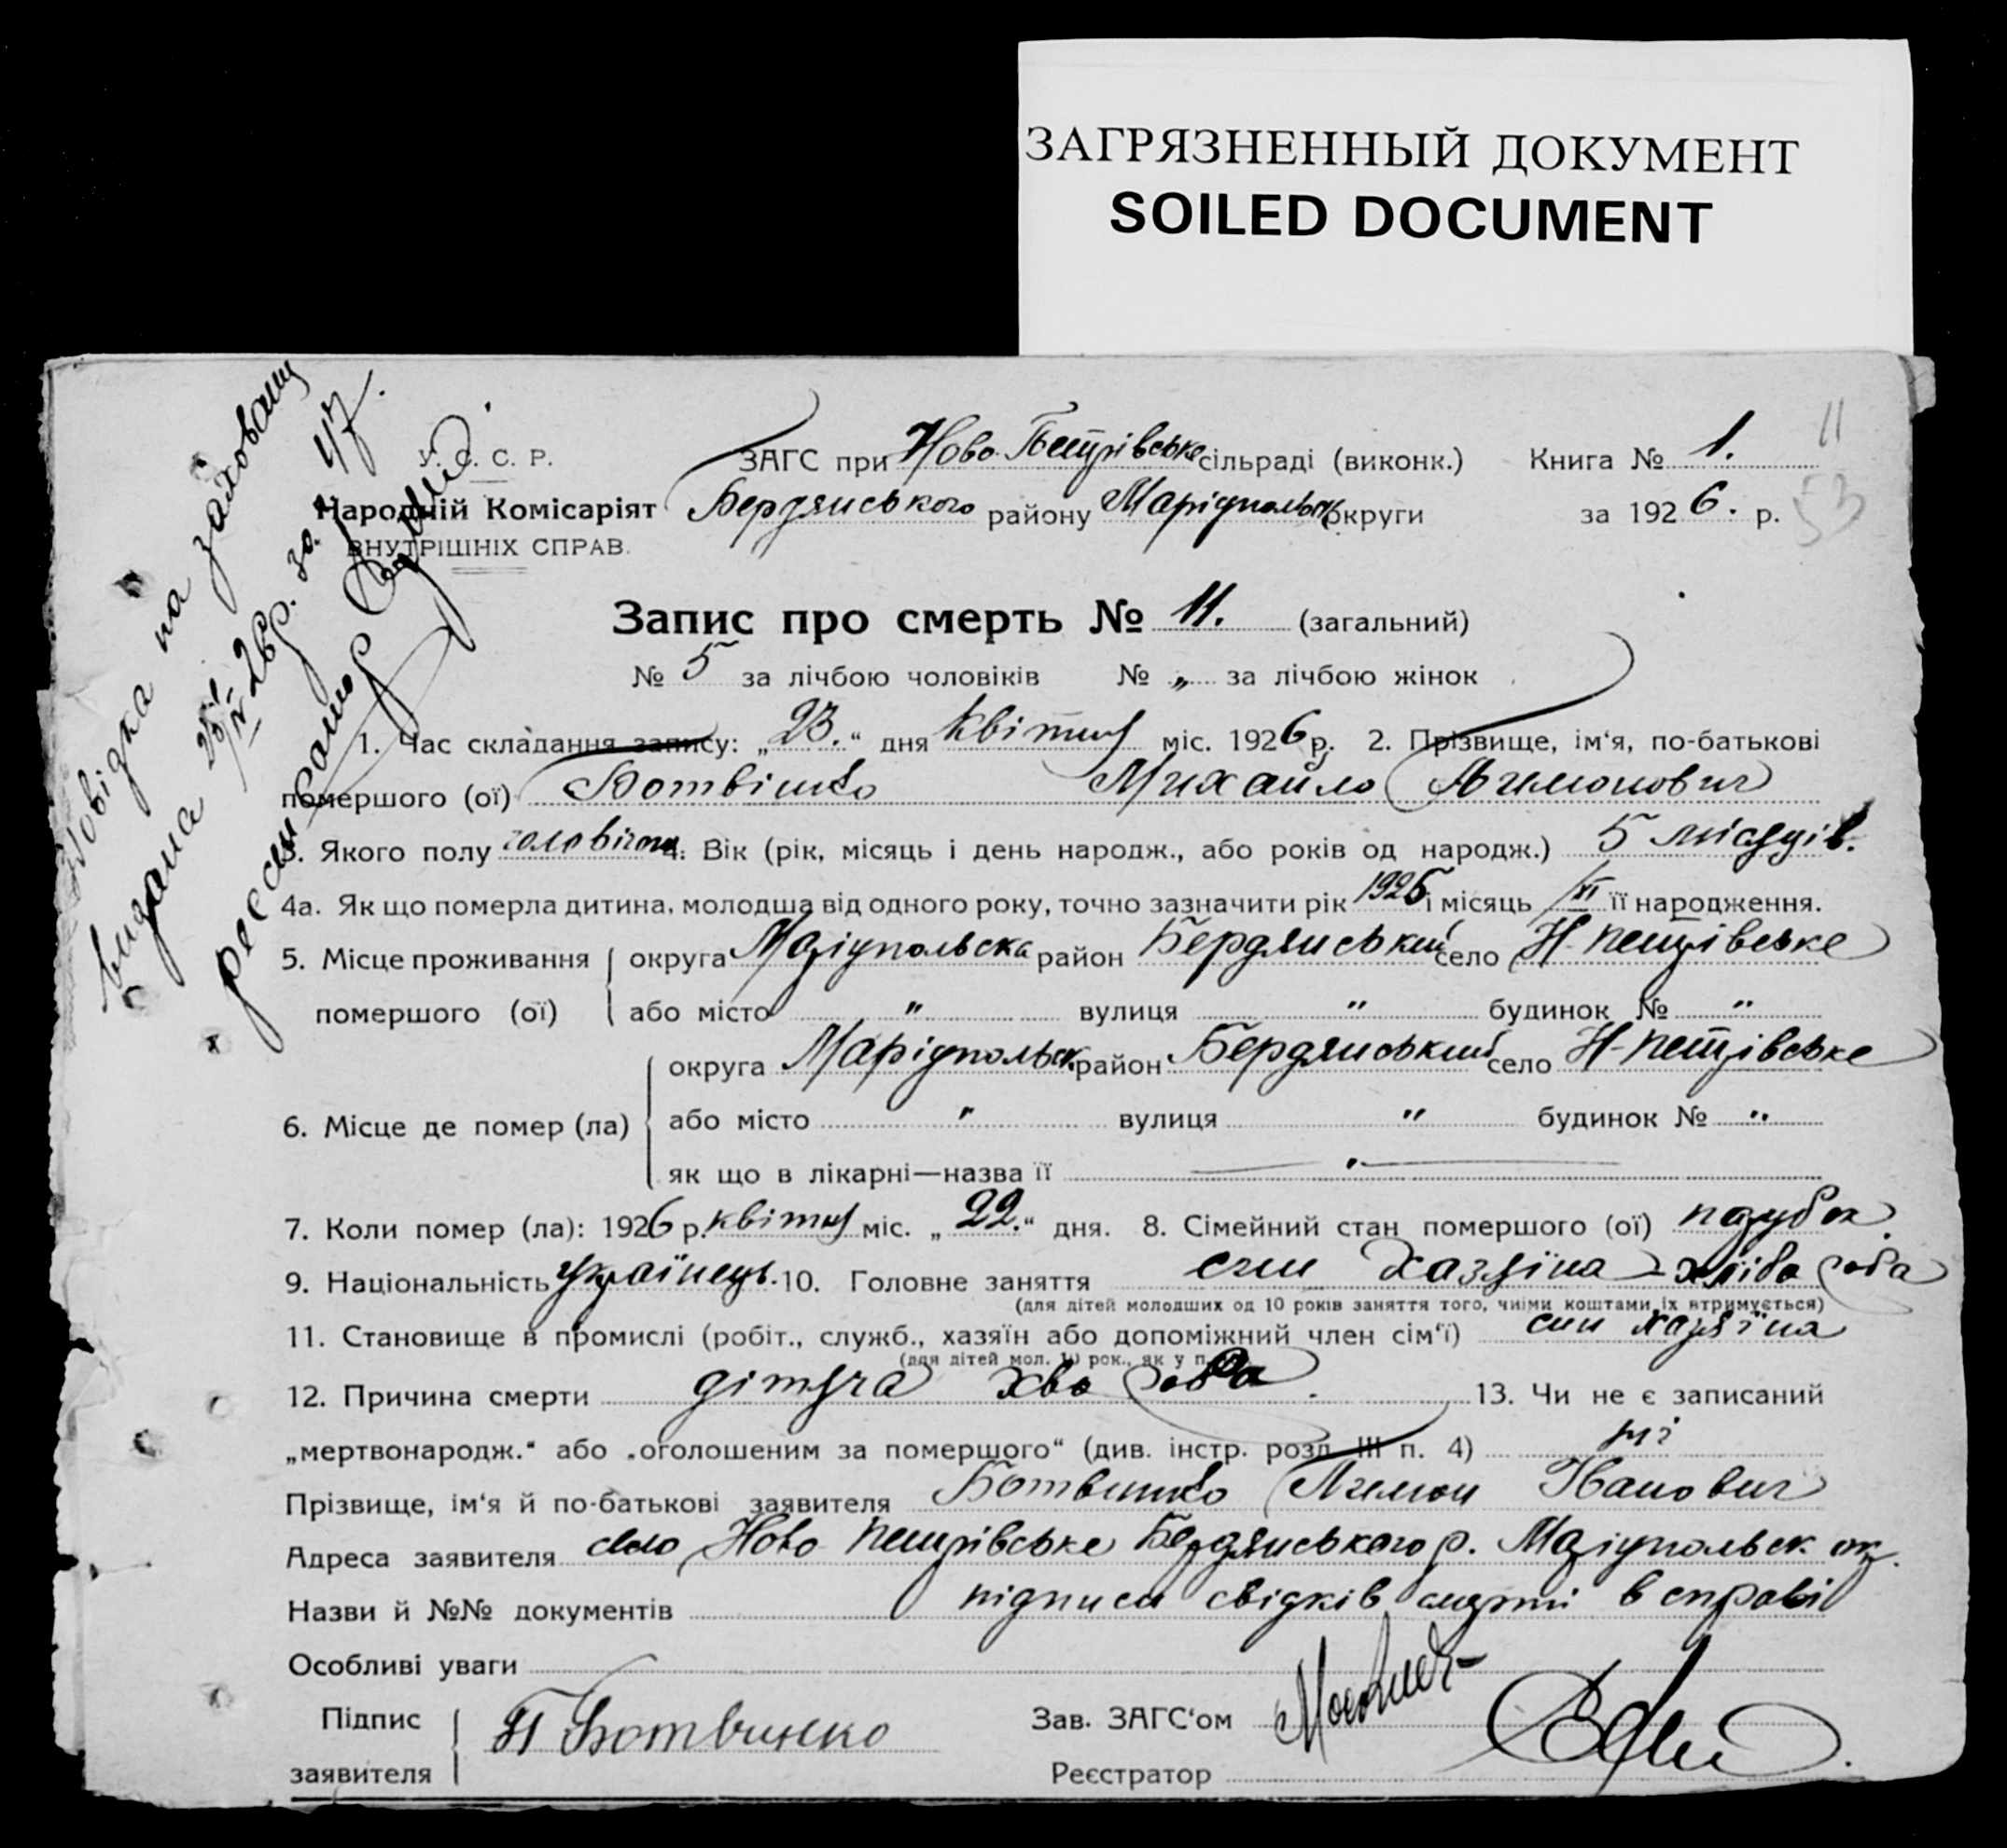 ЗАГРЯЗНЕННЫЙ ДОКУМЕНТ
SOILED DOCUMENT
11
53
Довідка на
видана 23/IV 26р. за № 47.
реєстратор
У. С. С. Р.
Народній Комісаріят
ВНУТРІШНІХ СПРАВ.
ЗАГС при Ново-Петрівське сільраді (виконк.) Книга № 1.
Бердянського району Маріупольськ округи за 1926. р.
Запис про смерть № 11. (загальний)
№ 5 за лічбою чоловіків № „ за лічбою жінок
1. Час складання запису: „23.“ дня квітня міс. 1926 р. 2. Прізвище, ім‘я, по-батькові
помершого (ої) Ботвінко Михайло
3. Якого полу чоловічого 4. Вік (рік, місяць і день народж., або років од народж.) 5 місяців.
4а. Як що померла дитина, молодша від одного року, точно зазначити рік 1925 і місяць XI її народження.
5. Місце проживання помершого (ої) округа Маріупольска район Бердянський село Н-Петрівське
або місто " вулиця " будинок № "
6. Місце де помер (ла) округа Маріупольськ. район Бердянський село Н-Петрівське
або місто " вулиця " будинок № "
як що в лікарні—назва її "
7. Коли помер (ла): 1926 р. квітня міс. „22.“ дня. 8. Сімейний стан помершого (ої) парубок
9. Національність українець. 10. Головне заняття син хазяїна - хлібороба
(для дітей молодших од 10 років заняття того, чиїми коштами їх втримується)
11. Становище в промислі (робіт., служб., хазяїн або допоміжний член сім‘ї) син хазяїна
(для дітей мол. 10 рок., як у п.
12. Причина смерти дітяча хвороба. 13. Чи не є записаний
„мертвонародж.“ або „оголошеним за помершого“ (див. інстр. розд. III п. 4) ні
Прізвище, ім‘я й по-батькові заявителя Ботвинко Іванович
Адреса заявителя село Ново-Петрівське Бердянського р. Маріупольськ ок.
Назви й №№ документів підписи свідків смерті в справі
Особливі уваги
Підпис заявителя Ботвинко
Зав. ЗАГС‘ом
Реєстратор